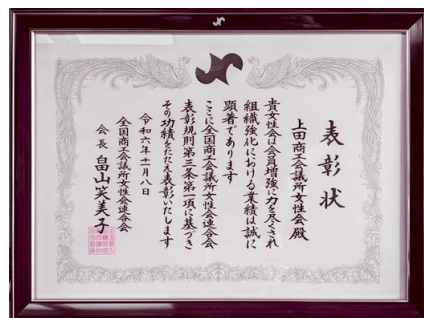 表彰状
上田商工会議所女性会殿
貴女性会は会員増強に力を尽くされ
組織強化における業績は誠に
顕著であります
ここに全国商工会議所女性会連合会
表彰規則第三条第一項に基づき
その功績をたたえ表彰いたします
令和六年十一月八日
全国商工会議所女性会連合会
会長 畠山笑美子